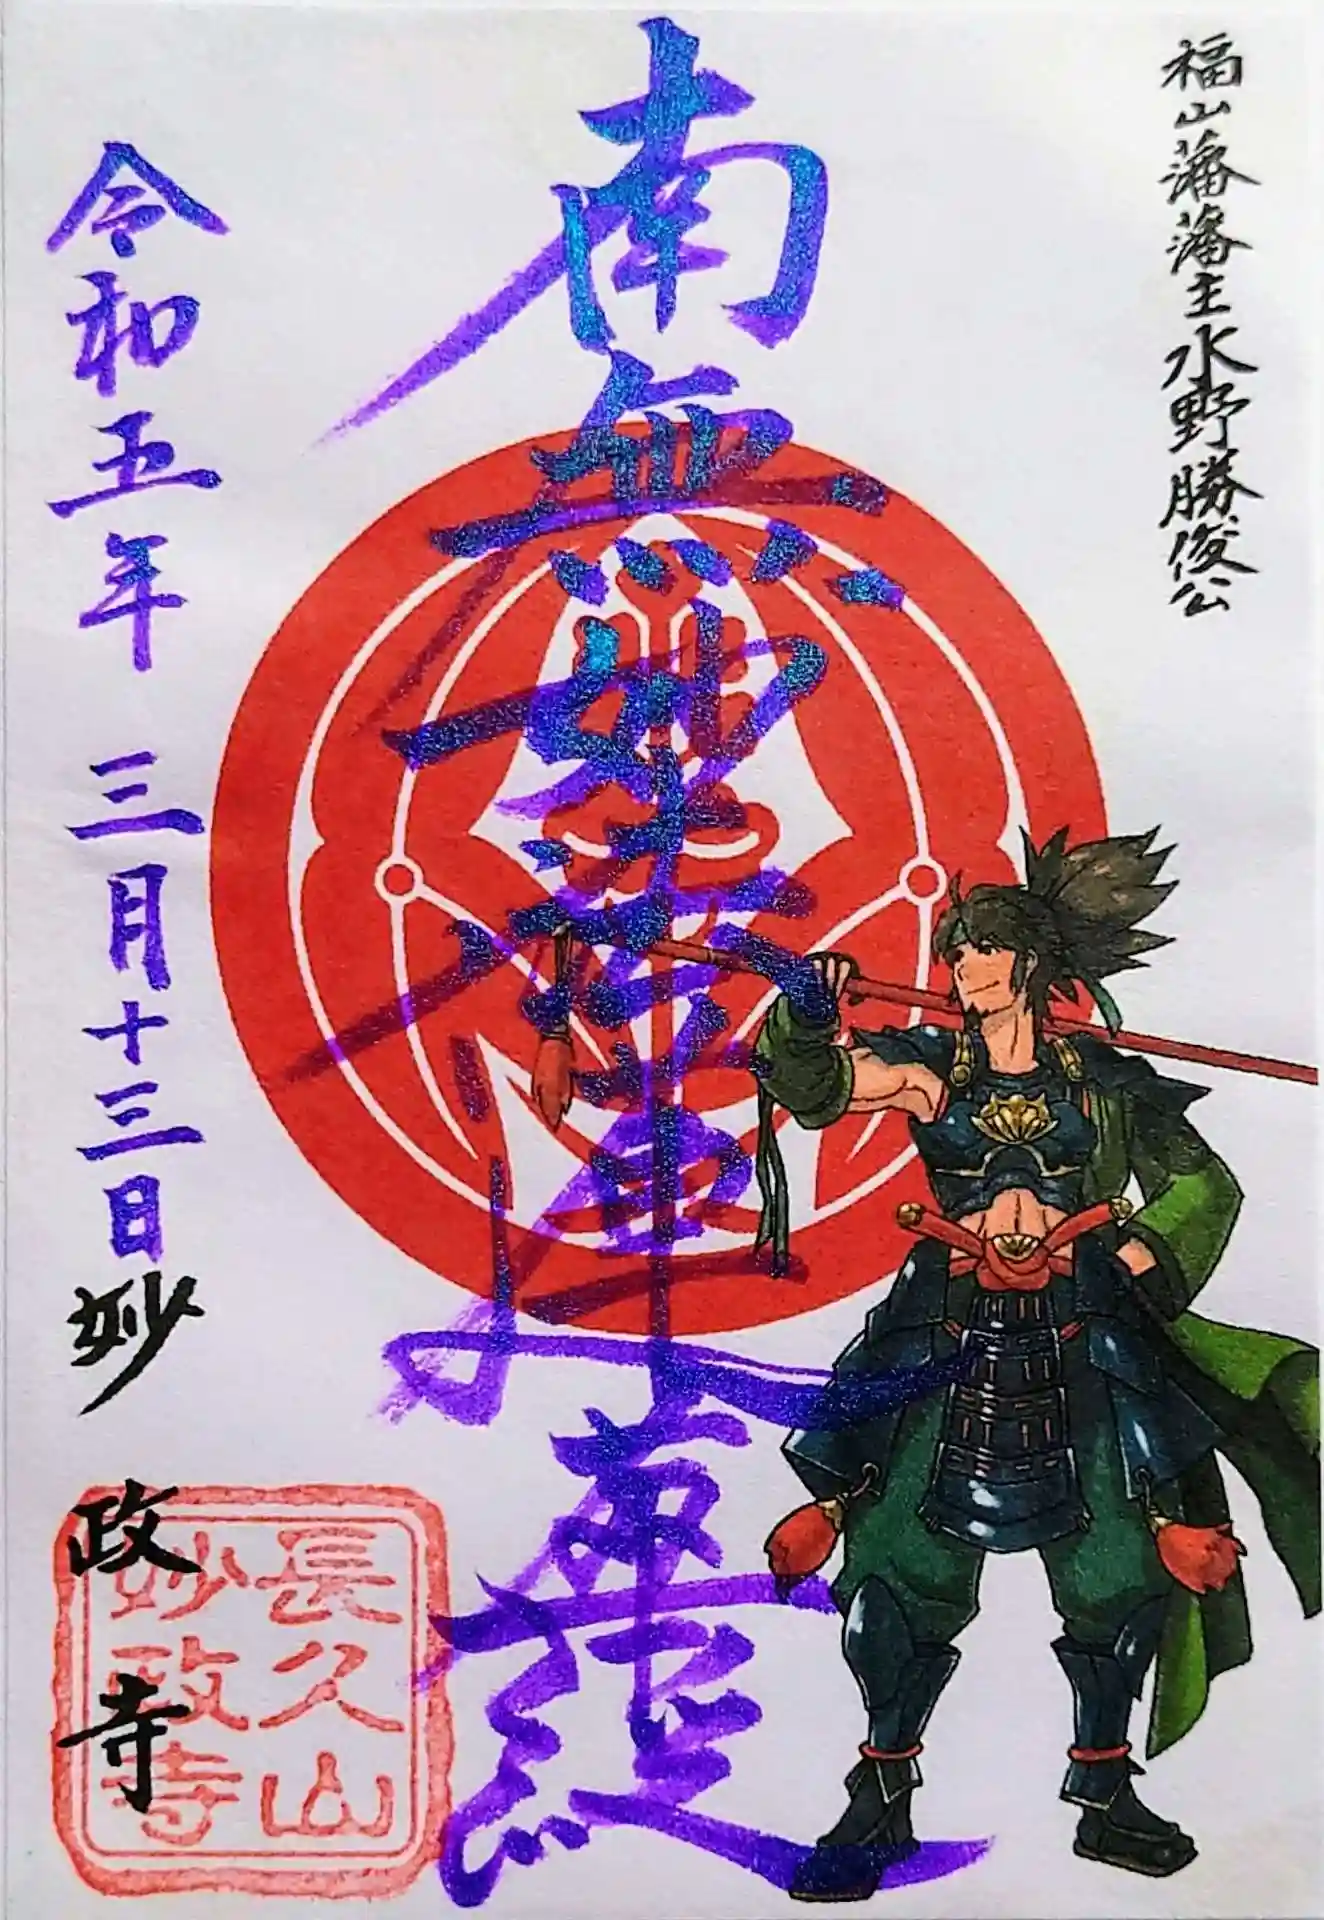 福山藩藩主水野勝俊公
南無妙法蓮華経
令和五年 三月十三日
妙政寺
長久山
妙政寺